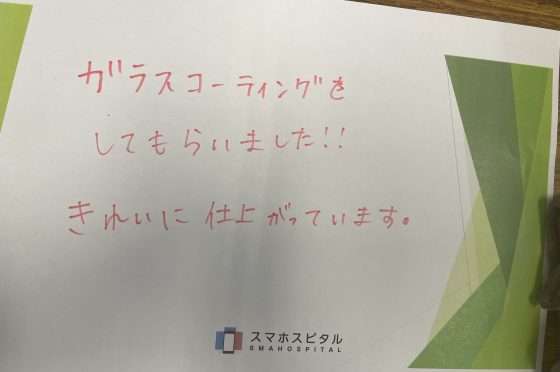 ガラスコーティングを
してもらいました!!
きれいに仕上がっています。
スマホスピタル
SMAHOSPITAL